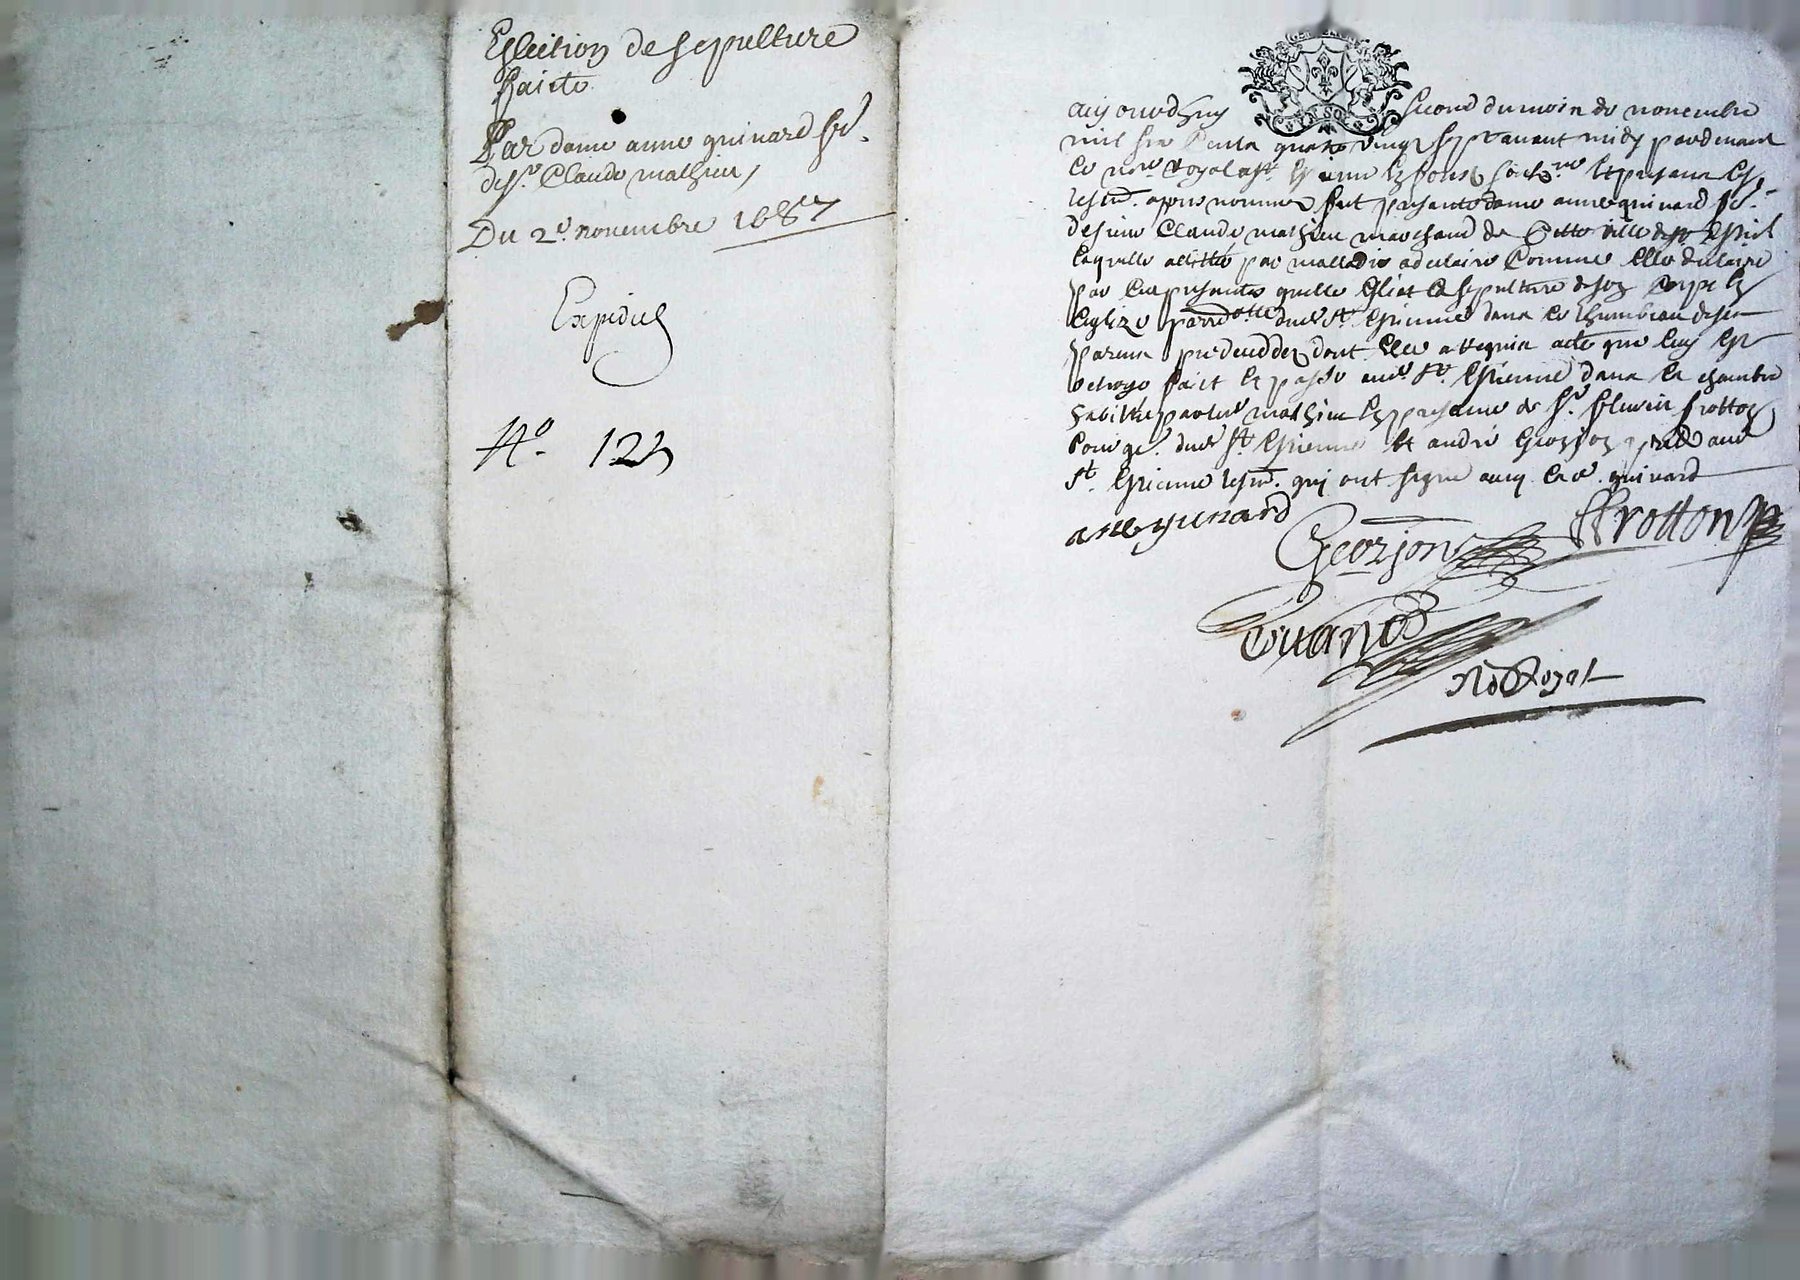 Eslection de sepulture
faicte
Par dame anne quinard fe.
de Sr. Claude mathieu,
Du 2e. novembre 1687
Expedies
No. 123
aujourdhuy second du mois de novembre
mil six cents quatre vingt sept avant midy pardevant
le nore. royal a St. Estienne en forest soubsne. et presents les
tesms. apres nommes fut presente dame anne quinard fe.
de sieur Claude mathieu marchand de cette ville de St Estienne
laquelle allittée par malladie de comme elle declaire
par ces presentes quelle eslict la sepulture de son corps en
leglize parrochelle dud St. Estienne dans le thumbeau de ses
parens predecedes dont elle a requis acte que luy est
octroyé faict et passé aud. St. Estienne dans la chambre
habitée par led mathieu en presence de Sr. frotton
bourgs. dud St. Estienne et andré Georjon prat. aud
St. Estienne tesms. qui ont signé avec lad. quinard
anne quinard
Georjon
Frotton
Nore Royal